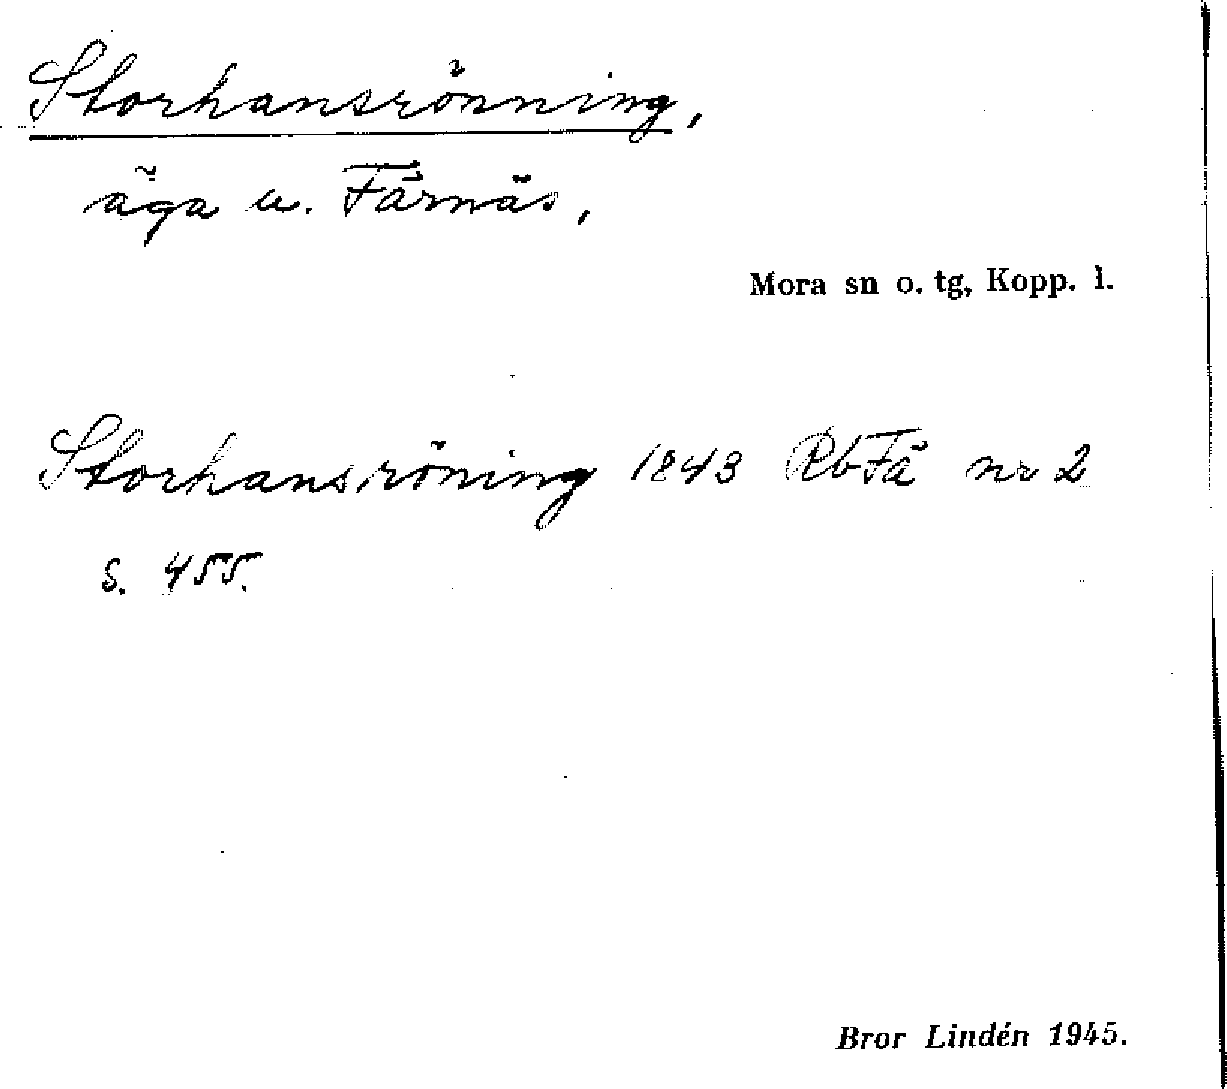 Storhansrönning,
äga u. Färnäs,
Mora sn o. tg, Kopp. l.
Storhansröning 1843 RbFä nr 2
s. 455.
Bror Lindén 1945.